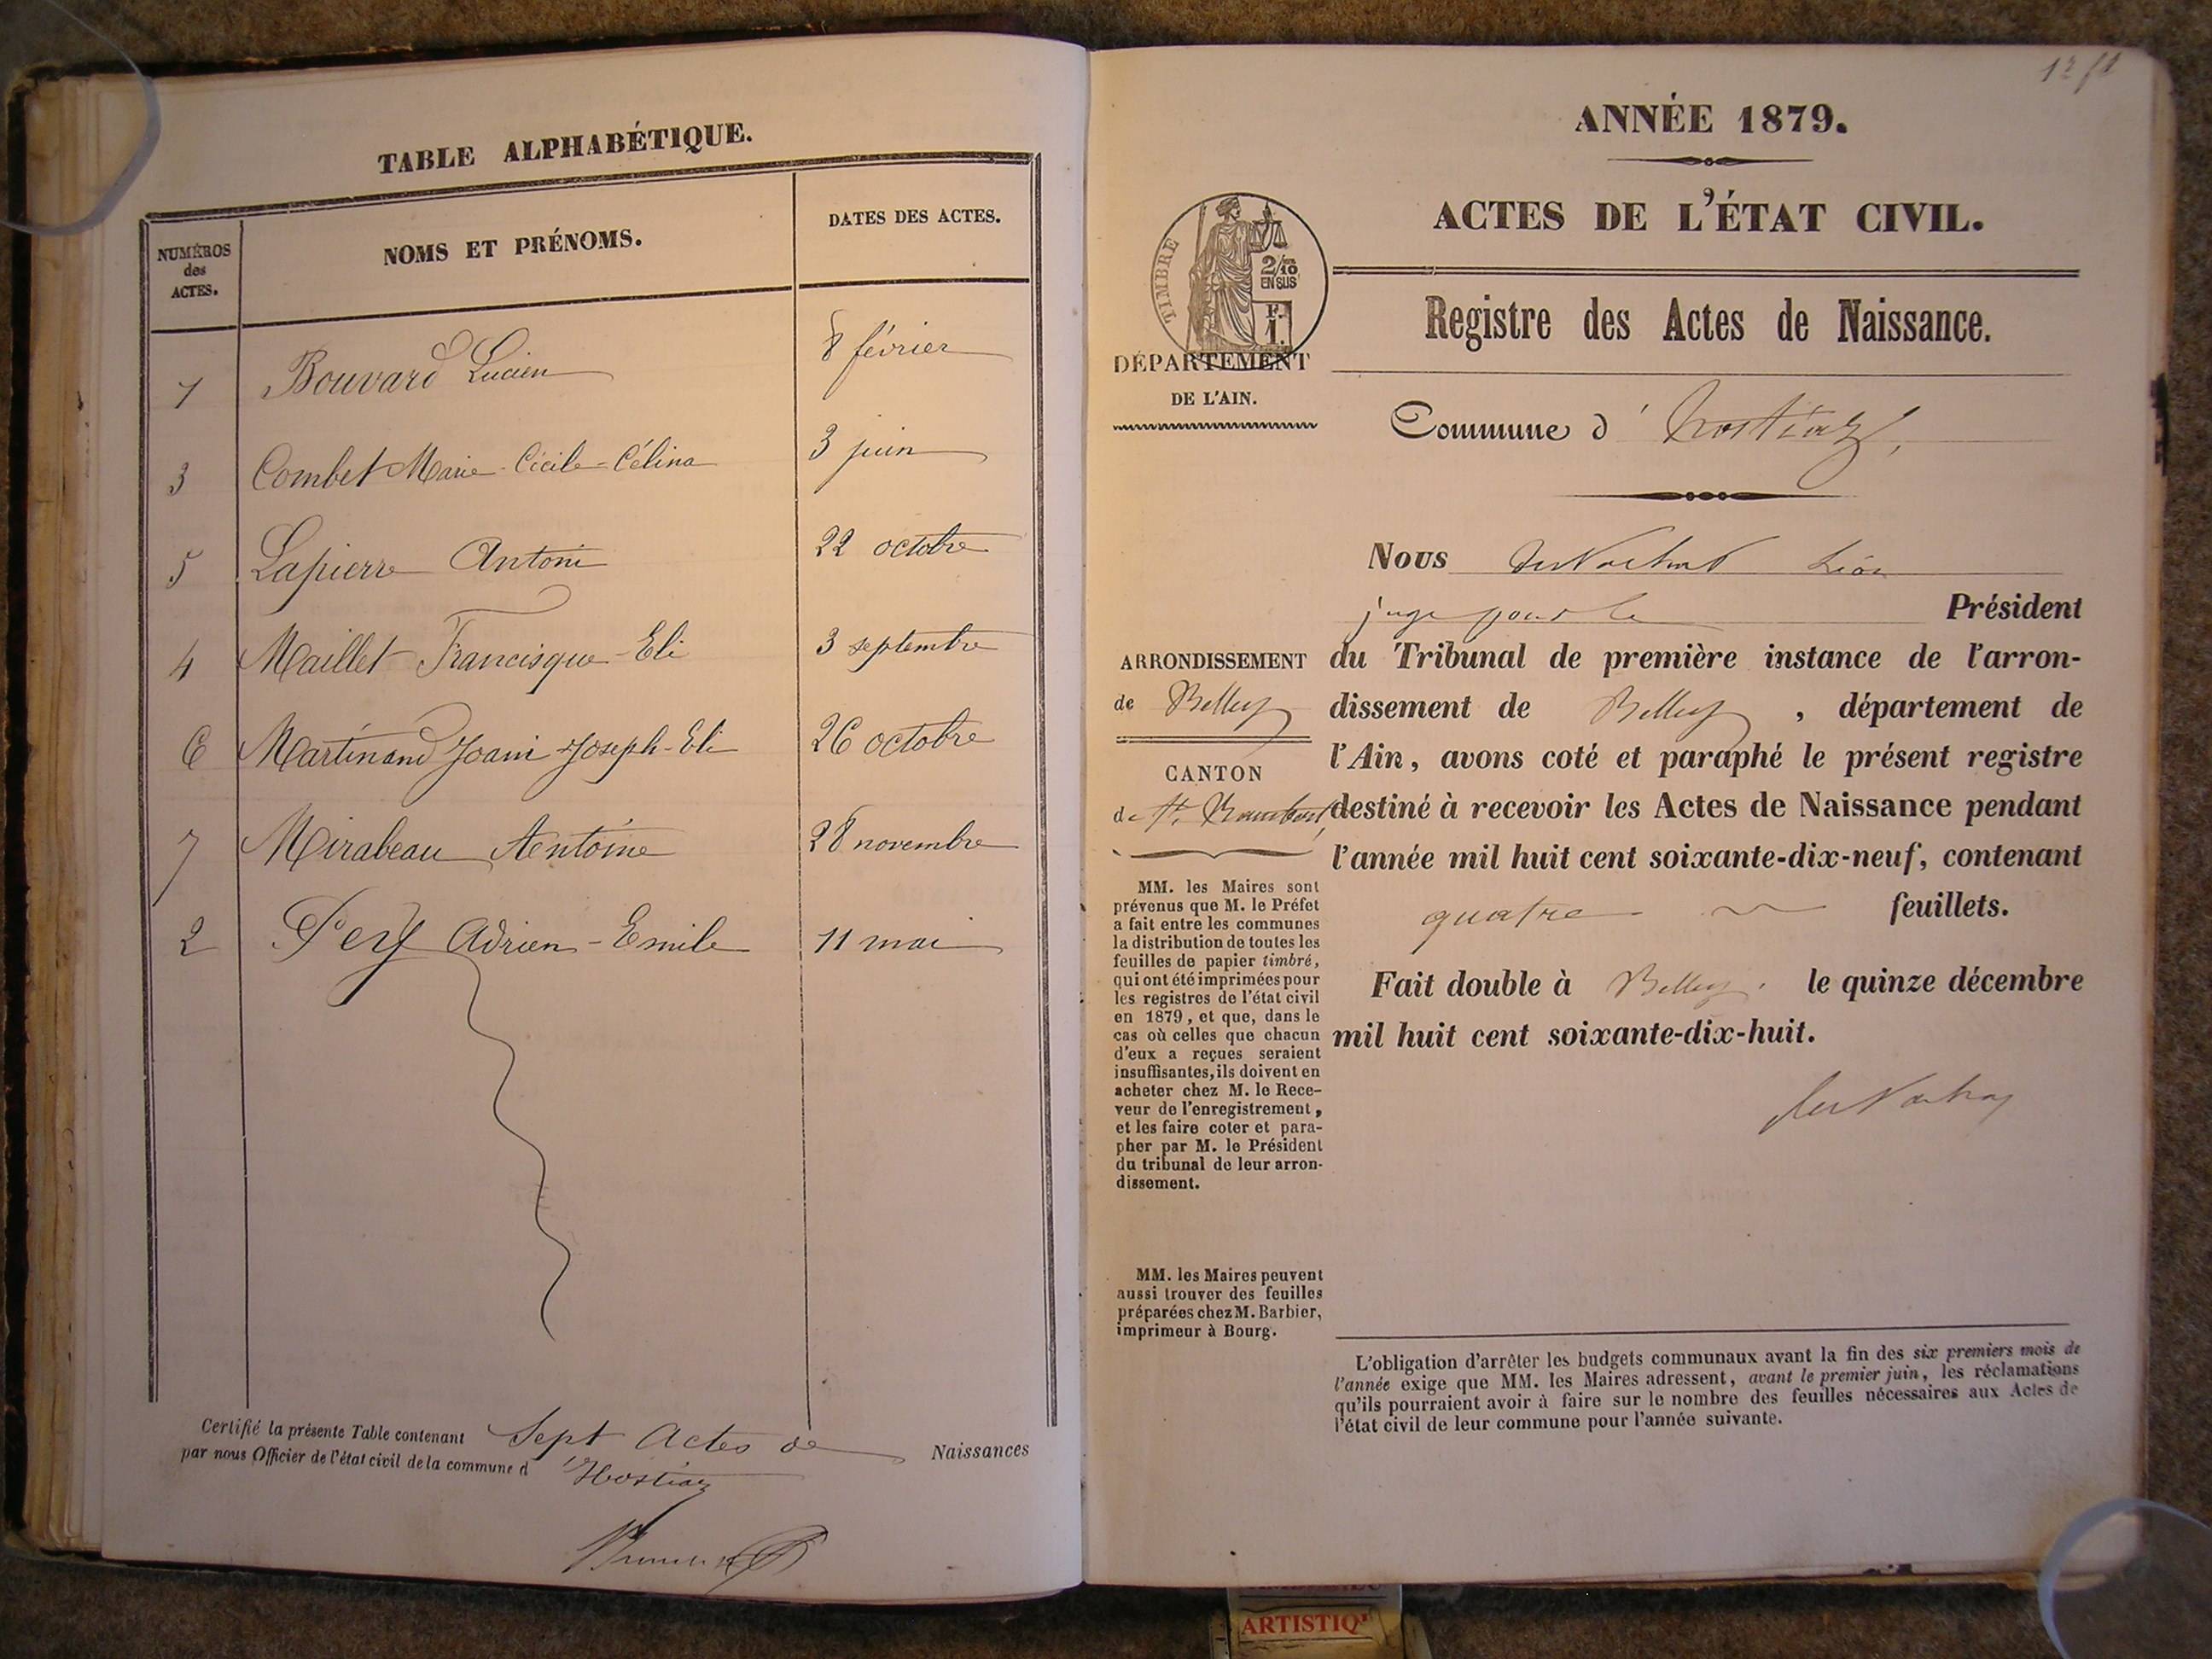 TABLE ALPHABÉTIQUE.
NUMÉROS
des
ACTES.
NOMS ET PRÉNOMS.
DATES DES ACTES.
1 Bouvard Lucien 8 février
3 Combet Marie-Cécile-Célina 3 juin
5 Lapierre Antoni 22 octobre
4 Maillet Francisque-Eli 3 septembre
6 Martinand Joani Joseph-Eli 26 octobre
7 Mirabeau Antoine 28 novembre
2 Pery Adrien-Emile 11 mai
Certifié la présente Table contenant Sept Actes de Naissances
par nous Officier de l'état civil de la commune d'Hostiaz
ANNÉE 1879.
ACTES DE L'ÉTAT CIVIL.
TIMBRE
2/10
EN SUS
F.
1.
Registre des Actes de Naissance.
DÉPARTEMENT
DE L'AIN.
Commune d'hostiaz,
Nous Léon
juge pour le Président
du Tribunal de première instance de l'arron-
dissement de Belley, département de
l'Ain, avons coté et paraphé le présent registre
destiné à recevoir les Actes de Naissance pendant
l'année mil huit cent soixante-dix-neuf, contenant
quatre feuillets.
Fait double à Belley, le quinze décembre
mil huit cent soixante-dix-huit.
ARRONDISSEMENT
de Belley
CANTON
de St. Rambert,
MM. les Maires sont
prévenus que M. le Préfet
a fait entre les communes
la distribution de toutes les
feuilles de papier timbré,
qui ont été imprimées pour
les registres de l'état civil
en 1879, et que, dans le
cas où celles que chacun
d'eux a reçues seraient
insuffisantes, ils doivent en
acheter chez M. le Rece-
veur de l'enregistrement,
et les faire coter et para-
pher par M. le Président
du tribunal de leur arron-
dissement.
MM. les Maires peuvent
aussi trouver des feuilles
préparées chez M. Barbier,
imprimeur à Bourg.
L'obligation d'arrêter les budgets communaux avant la fin des six premiers mois de
l'année exige que MM. les Maires adressent, avant le premier juin, les réclamations
qu'ils pourraient avoir à faire sur le nombre des feuilles nécessaires aux Actes de
l'état civil de leur commune pour l'année suivante.
ARTISTIQ